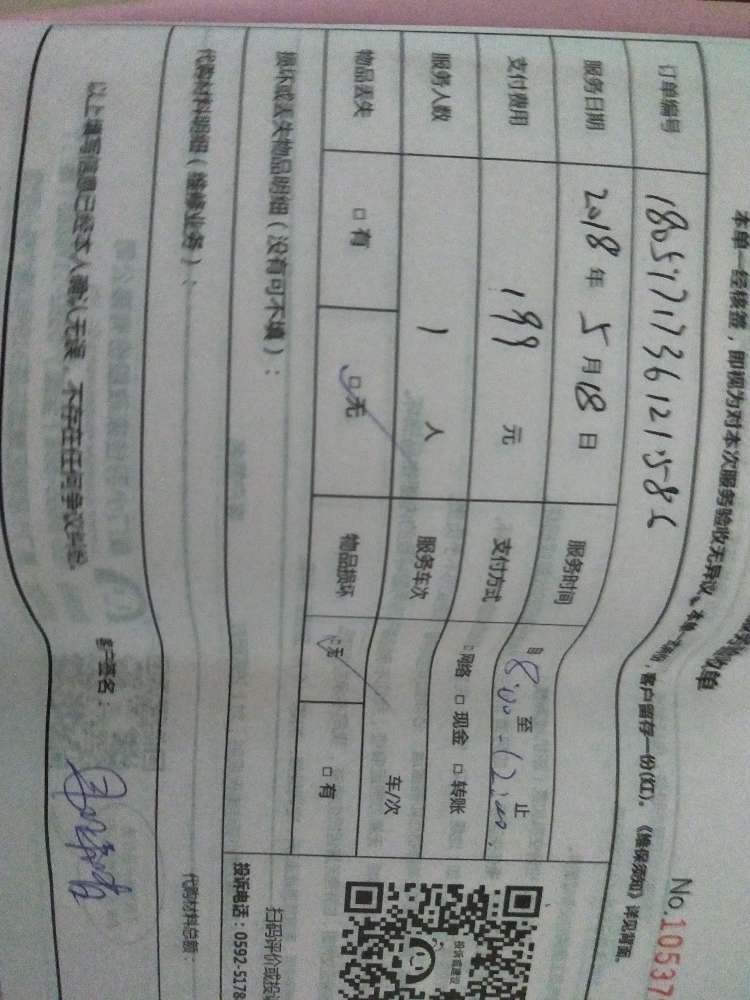 收单
No.10537
本单一经核签，即视为对本次服务验收无异议。本单一式两份，客户留存一份(红)。《维保须知》详见背面。
订单编号 180517173612158
服务日期 2018年5月18日 服务时间 自8:00至12:00止
支付费用 199元 支付方式 □网络 □现金 □转账
服务人数 1人 服务车次 车/次
物品丢失 □有 □无 物品损坏 □无 □有
损坏或丢失物品明细（没有可不填）：
扫码评价或投
投诉或建议
投诉电话：0592-5178
代购材料明细（维修业务）：
代购材料总额：
以上填写信息已经本人确认无误，不存在任何争议
客户签名：